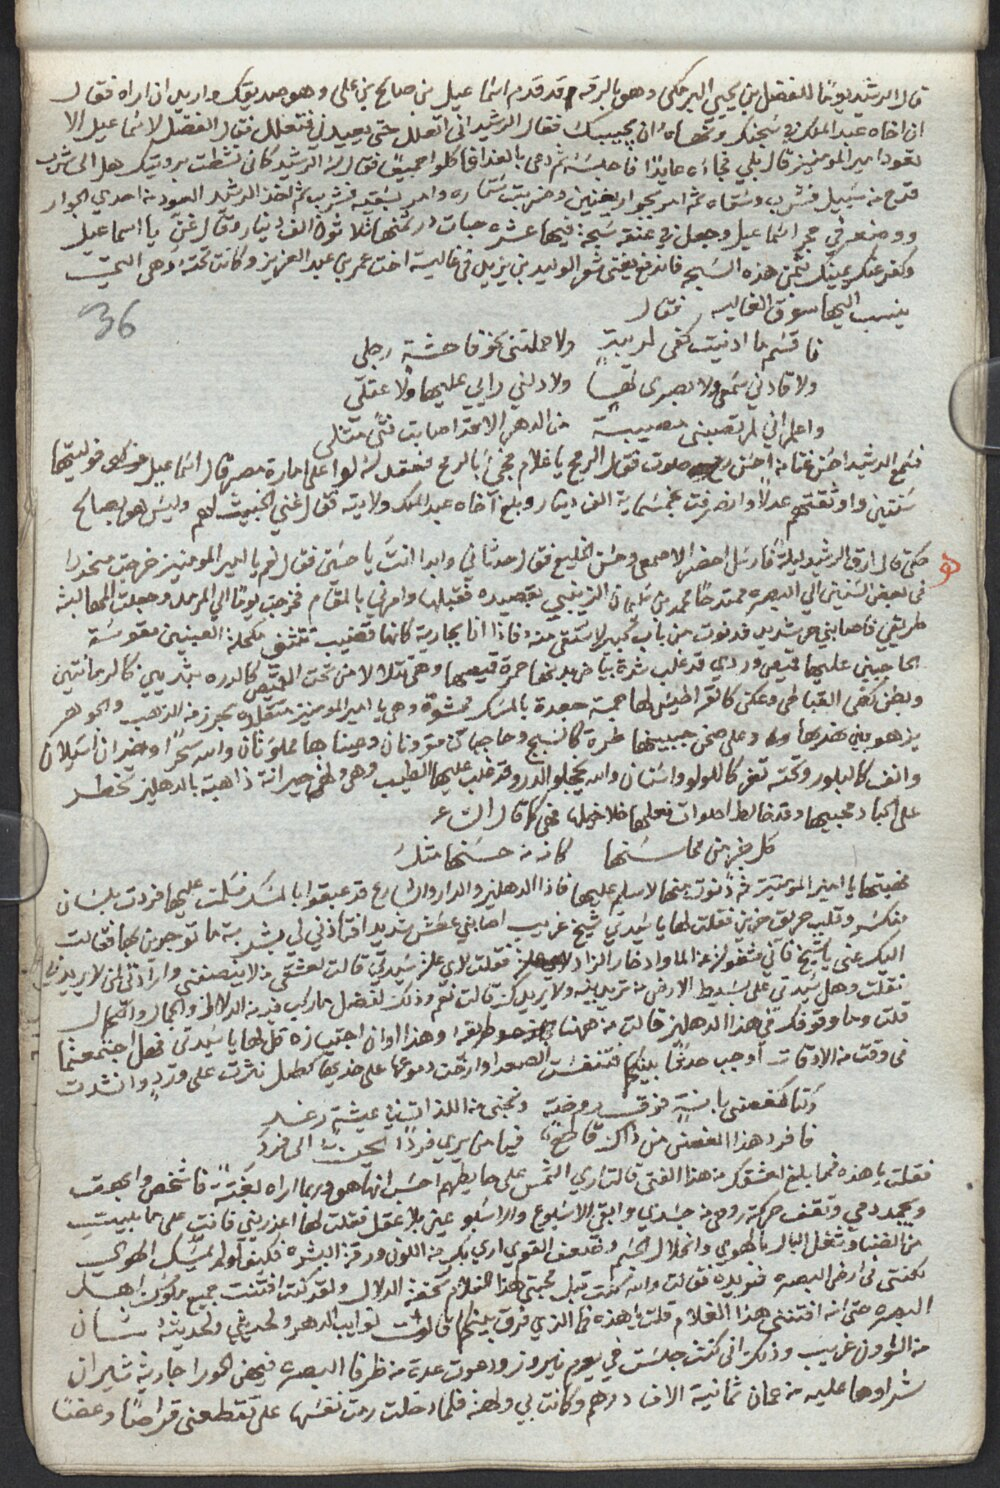 قال الرشيد يوما للفضل بن يحيى البرمكي وهو بالرقه قد قدم اسماعيل بن صالح بن علي وهو صديقك واريد ان اراه فقال
ان اخاه عبد الملك في سجنك ونهاه ان يجيبك فقال الرشيد اني اتعلل حتى يعيدني فتعلل فقال الفضل لاسماعيل الا
تعود امير المومنين قال بلى فجاءه عايدا فاجلسه ثم دعى بالغدا فاكلوا جميعا فقال له الرشيد كاني نشطت برويتك هل الى شرب
قدح من سبيل فشرب وسقاه ثم امر بجوار يغنين وضربت ستاره وامر بسقيه فشرب ثم اخذ الرشيد العود من احدى الجوار
ووضعه في حجر اسماعيل وجعل في عنقه سبحة فيها عشر حبات در ثمنها ثلاثون الف دينار وقال غن يا اسماعيل
وكفر عنك يمينك بثمن هذه السبحه فاندفع يغني شعر الوليد بن يزيد في غالية اخت عمر بن عبد العزيز وكانت تحته وهى التي
ينسب اليها سوق الغاليه فقال
36
فاقسم ما ادنيت كفي لريبة ولا حملتني نحو فاحشة رجلي
ولا قادني سمعي ولا بصري لها ولا دلني رايي عليها ولا عقلي
واعلم اني لم تصبني مصيبة من الدهر الا قد اصابت فتى مثلي
فسمع الرشيد احسن غنا من احسن صوت فقال الرمح يا غلام فجئ بالرمح فعقد له لوا على امارة مصر قال اسماعيل فوليتها
سنتين واوثقتهم عدلا وانصرفت بخمسماية الف دينار وبلغ اخاه عبد الملك ولايته فقال غنى الخبيث لهم وليس هو بصالح
حكي قال ارق الرشيد ليلة فارسل احضر الاصمعي وحسين الخليع فقال حدثاني وابدا انت يا حسين فقال نعم يا امير المومنين خرجت منحدرا
في بعض السنين الى البصره ممتدحا محمد بن سليمان الزينبي بقصيده فقبلها وامرني بالمقام فخرجت يوما الى المربد وجعلت المهالبة
طريقي فاصابني حر شديد فدنوت من باب كبير لاستقي منه فاذا انا بجارية كانها قضيب تتثنى مكحلة العينين مقوسة
الحاجبين عليها قميص وردي قد غلب شدة بياض بدنها حمرة قميصها وهى تتلالا من تحت القميص كالدره بثديين كالرمانتين
وبطن كطي القباطي وعكن كالقراطيس لها جمة جعدة بالمسك محشوة وهى يا امير المومنين متقلده بخرز من الذهب والجوهر
يزهو بين نهديها وعلى صحن جبينها طرة كالسبج وحاجبان مقرونان وعيناها مملوتان والله سحرا وخدان اسيلان
وانف كالبلور وتحته ثغر كاللولو واسنان والله يحكوا الدر وقد غلب عليها الطيب وهى ولهى حيرانة ذاهبة بالدهليز تخطر
على اكباد محبيها وقد خالط اصوات نعلها خلاخيلها فهى كما قال الشاعر
كل جزء من محاسنها كائن من حسنها مثل
فهبتها يا امير المومنين ثم دنوت منها لاسلم عليها فاذا الدهليز والدار والشارع قد عبقوا بالمسك فسلمت عليها فردت بلسان
منكسر وقلب حريق حزين فقلت لها يا سيدتي شيخ غريب اصابني عطش شديد افتاذني لي بشربة ما توجرين بها فقالت
اليك عني يا شيخ فاني مشغولة عن الما وادخار الزاد فقلت لاي علة سيدتي قالت لعشقي من لا ينصفني وارادتي لمن لا يريدني
فقلت وهل سيدتي على بسيط الارض من تريدينه ولا يريدك قالت نعم وذلك لفضل ما ركب فيه من الدلال والجمال والكمال
قلت وما وقوفك في هذا الدهليز قالت من ههنا طريقه وهذا اوان اجتيازه قلت لها يا سيدتي فهل اجتمعتما
في وقت من الاوقات اوجب حديثا بينكما فتنفست الصعدا وارخت دموعها على خديها كطل نثرت على ورد وانشدت
وكنا كغصني بانة فوق روضة ونجني من اللذات في عيشة رغد
فافرد هذا الغصن من ذاك قاطع فيا من يرى فردا يحن الى فرد
فقلت يا هذه فما بلغ عشقك من هذا الفتى قالت ارى الشمس على حايطهم احسب انها هو وربما اراه بغتة فاشخص واجحف
ويجمد دمي وتقف حركة روحي من جسدي وابقى الاسبوع والاسبوعين بلا عقل فقلت لها اعذريني فانت على ما بليت
من الضنا وشغل البال بالهوى وانحلال الجسم وضعف القوى ارى بك من اللون ورقة البشره فكيف لو لم يمسك الهوى
لكنتي في ارض البصره فريده فقالت والله كنت قبل محبتي هذا الغلام تحفة الدلال ولقد كنت افتنت جميع ملوك اهل
البصره حتى انه افتنني هذا الغلام قلت يا هذه فما الذي فرق بينكما قالت نوايب الدهر ولحديثي ولحديثه شان
من الشؤون غريب وذلك اني كنت جلست في يوم نيروز ودعوت عدة من ظرفا البصره فيهن الحورا جارية شيران
شراوها عليه من عمان ثمانية الاف درهم وكانت بي ولهة فلما دخلت رمت نفسها علي تقطعني قراصا وعضا